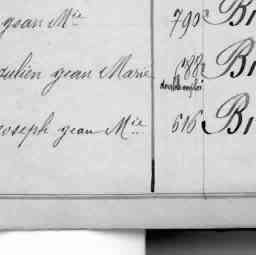 jean Mie 790 Bi
Julien jean Marie 188 Bi
double emploi
joseph jean Mie 516 Bi